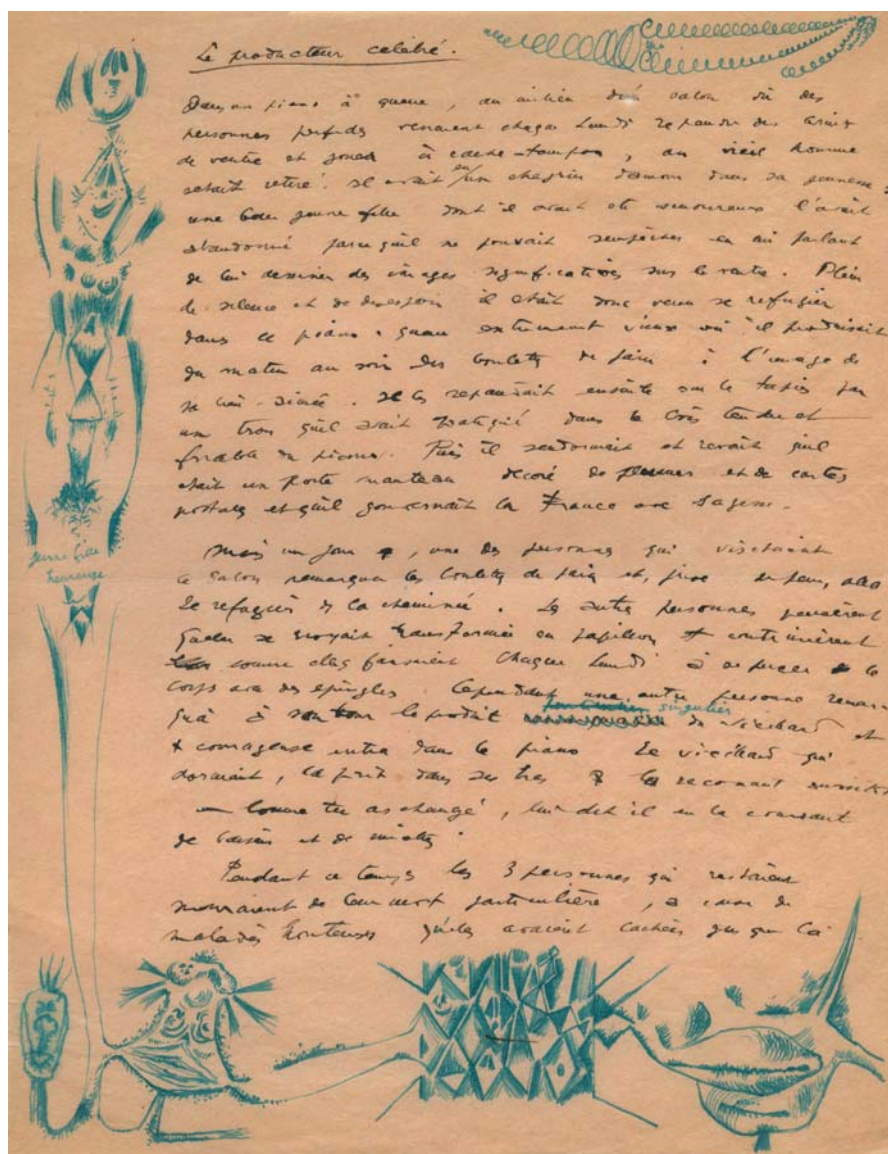 Le producteur célébré.
Dans un piano à queue, au milieu d'un salon où des
personnes perfides venaient chaque lundi répandre des
de ventre et jouer à cache-tampon, un vieil homme
s'était retiré. Il avait eu un chagrin d'amour dans sa jeunesse :
une jeune fille dont il avait été amoureux l'avait
abandonné parce qu'il ne pouvait s'empêcher en lui parlant
de lui dessiner des images significatives sur le ventre. Plein
de silence et de désespoir il était donc venu se réfugier
dans ce piano à queue extrêmement vieux où il produisait
du matin au soir des boulettes de pain à l'image de
sa bien-aimée. Il les répandait ensuite sur le tapis par
un trou qu'il avait pratiqué dans le bois tendre et
friable du piano. Puis il s'endormait et rêvait qu'il
était un porte manteau décoré de plumes et de cartes
postales et qu'il gouvernait la France avec sagesse.
Mais un jour, une des personnes qui visitaient
le salon remarqua les boulettes de pain et, prise de peur, alla
se réfugier ds la cheminée. Les autres personnes pensèrent
qu'elle se croyait transformée en papillon et continuèrent
comme elles faisaient chaque lundi à se percer le
corps avec des épingles. Cependant une autre personne remar-
qua à son tour le produit singulier du vieillard et
courageuse entra dans le piano. Le vieillard qui
dormait, la prit dans ses bras la reconnut
— Comme tu as changé, lui dit-il en la couvrant
de baisers et de miettes.
Pendant ce temps les 3 personnes qui restaient
mouraient de leur mort particulière, à cause de
maladies honteuses qu'elles avaient cachées jusque là
jeune fille
heureuse